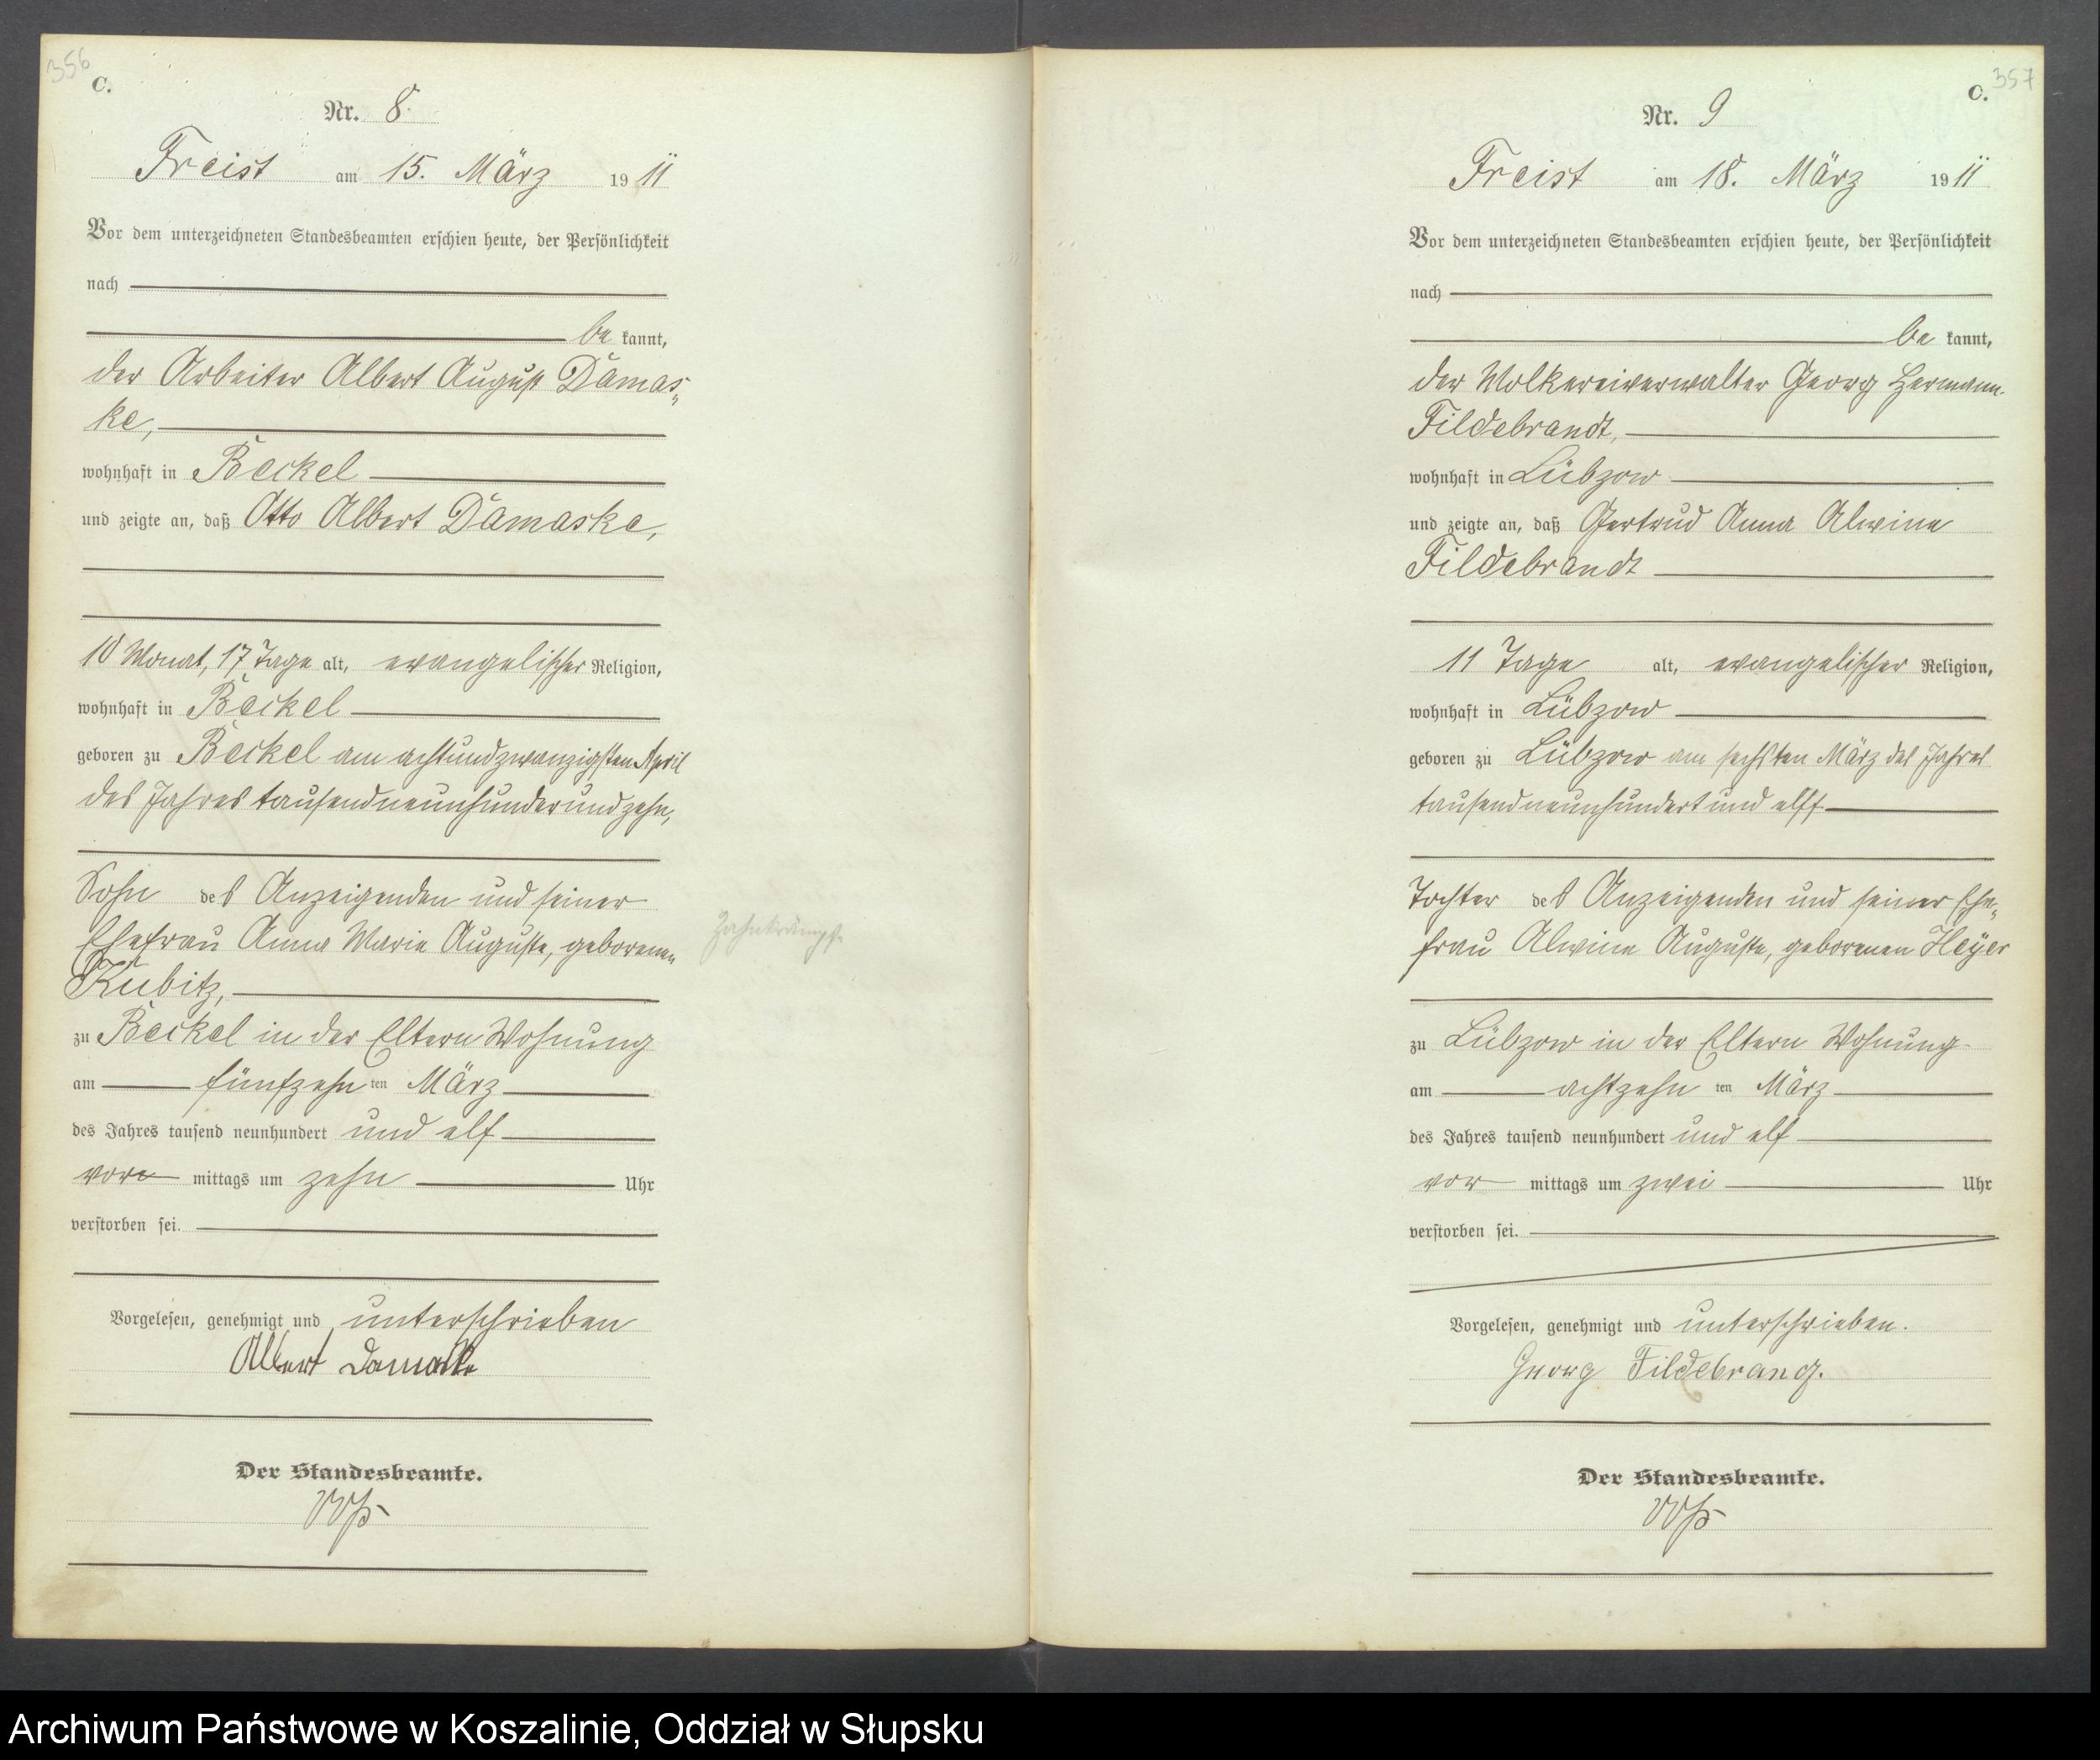 356
C.
Nr. 8.
Freist am 15. März 1911
Vor dem unterzeichneten Standesbeamten erschien heute, der Persönlichkeit
nach
be kannt,
der Arbeiter Albert August Damas„
ke,
wohnhaft in Beckel
und zeigte an, daß Otto Albert Damaske,
10 Monat, 17 Tage alt, evangelischer Religion,
wohnhaft in Beckel
geboren zu Beckel am achtundzwanzigsten April
des Jahres tausendneunhunderundzehn,
Sohn des Anzeigenden und seiner
Ehefrau Anna Marie Auguste, geborenen
Kubitz,
zu Beckel in der Eltern Wohnung
am fünfzehn ten März
des Jahres tausend neunhundert und elf
vor mittags um zehn Uhr
verstorben sei.
Vorgelesen, genehmigt und unterschrieben
Albert Damaske
Der Standesbeamte.
Zahnkrämpfe
357
C.
Nr. 9
Freist am 18. März 1911
Vor dem unterzeichneten Standesbeamten erschien heute, der Persönlichkeit
nach
be kannt,
der Molkereiverwalter Georg Hermann
Fildebrandt,
wohnhaft in Lübzow
und zeigte an, daß Gertrud Anna Alwine
Fildebrandt
11 Tage alt, evangelischer Religion,
wohnhaft in Lübzow
geboren zu Lübzow am sechsten März des Jahres
tausendneunhundert und elff
Tochter des Anzeigenden und seiner Ehe„
frau Alwine Auguste, geborenen Heyer
zu Lübzow in der Eltern Wohnung
am achtzehn ten März
des Jahres tausend neunhundert und elf
vor mittags um zwei Uhr
verstorben sei.
Vorgelesen, genehmigt und unterschrieben.
Georg Fildebrandt.
Der Standesbeamte.
Archiwum Państwowe w Koszalinie, Oddział w Słupsku